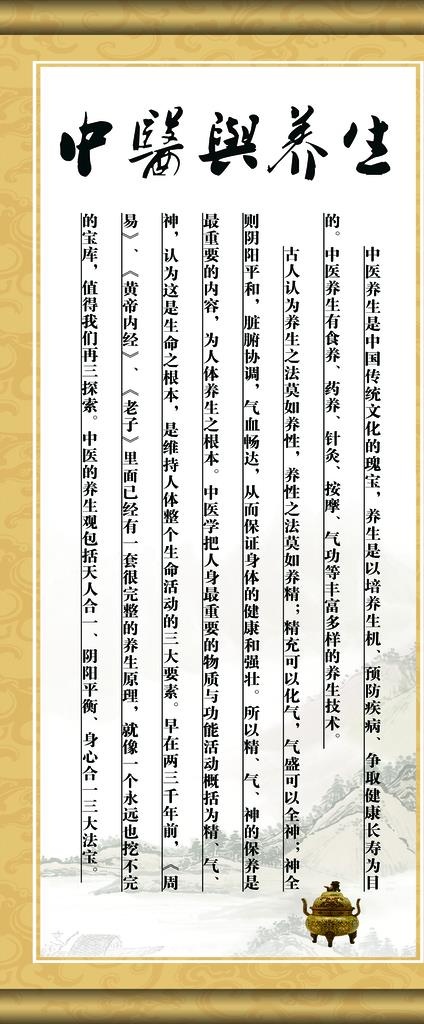 中醫與养生
中医养生是中国传统文化的瑰宝，养生是以培养生机、预防疾病、争取健康长寿为目
的。中医养生有食养、药养、针灸、按摩、气功等丰富多样的养生技术。
古人认为养生之法莫如养性，养性之法莫如养精；精充可以化气，气盛可以全神；神全
则阴阳平和，脏腑协调，气血畅达，从而保证身体的健康和强壮。所以精、气、神的保养是
最重要的内容，为人体养生之根本。中医学把人身最重要的物质与功能活动概括为精、气、
神，认为这是生命之根本，是维持人体整个生命活动的三大要素。早在两三千年前，《周
易》、《黄帝内经》、《老子》里面已经有一套很完整的养生原理，就像一个永远也挖不完
的宝库，值得我们再三探索。中医的养生观包括天人合一、阴阳平衡、身心合一三大法宝。